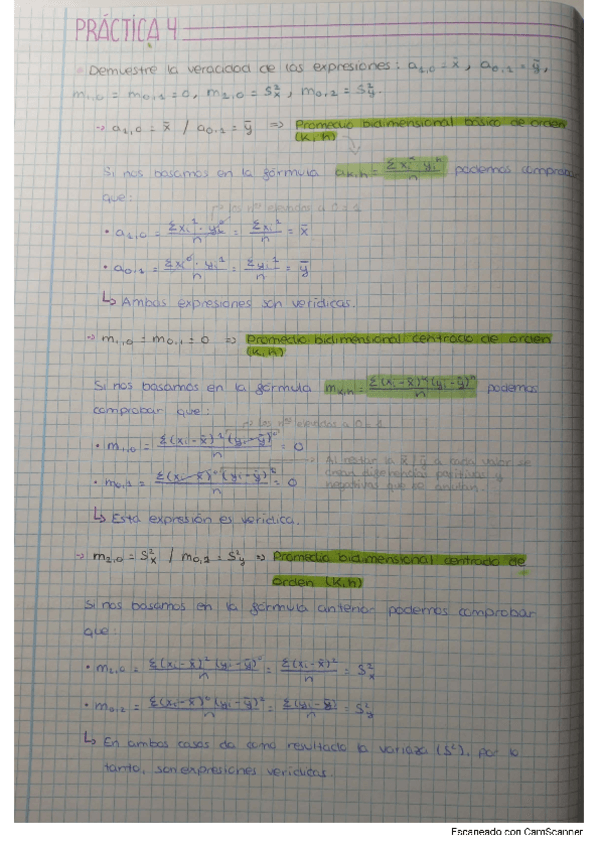 PRÁCTICA 4
Demuestre la veracidad de las expresiones: a₁,₀ = x̄, a₀,₁ = ȳ,
m₁,₀ = m₀,₁ = 0, m₂,₀ = S²x, m₀,₂ = S²y.
→ a₁,₀ = x̄ / a₀,₁ = ȳ ⇒ Promedio bidimensional básico de orden
(k, h)
Si nos basamos en la fórmula aₖ,ₕ = Σxᵢᵏ yᵢʰ / n podemos comprobar
que:
los nºs elevados a 0 = 1
• a₁,₀ = Σxᵢ¹ · yᵢ⁰ / n = Σxᵢ¹ / n = x̄
• a₀,₁ = Σxᵢ⁰ · yᵢ¹ / n = Σyᵢ¹ / n = ȳ
↳ Ambas expresiones son verídicas.
→ m₁,₀ = m₀,₁ = 0 ⇒ Promedio bidimensional centrado de orden
(k, h)
Si nos basamos en la fórmula mₖ,ₕ = Σ(xᵢ - x̄)ᵏ (yᵢ - ȳ)ʰ / n podemos
comprobar que:
los nºs elevados a 0 = 1
• m₁,₀ = Σ(xᵢ - x̄)¹ (yᵢ - ȳ)⁰ / n = 0
• m₀,₁ = Σ(xᵢ - x̄)⁰ (yᵢ - ȳ)¹ / n = 0
Al restar la x̄ / ȳ a cada valor se
crean diferencias positivas y
negativas que se anulan.
↳ Esta expresión es verídica.
→ m₂,₀ = S²x / m₀,₂ = S²y ⇒ Promedio bidimensional centrado de
orden (k, h)
Si nos basamos en la fórmula anterior podemos comprobar
que:
• m₂,₀ = Σ(xᵢ - x̄)² (yᵢ - ȳ)⁰ / n = Σ(xᵢ - x̄)² / n = S²x
• m₀,₂ = Σ(xᵢ - x̄)⁰ (yᵢ - ȳ)² / n = Σ(yᵢ - ȳ) / n = S²
↳ En ambos casos da como resultado la varianza (S²), por lo
tanto, son expresiones verídicas.
Escaneado con CamScanner